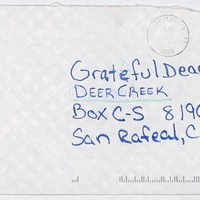 Grateful Dead
DEER CREEK
Box C-S 8190
San Rafeal, C